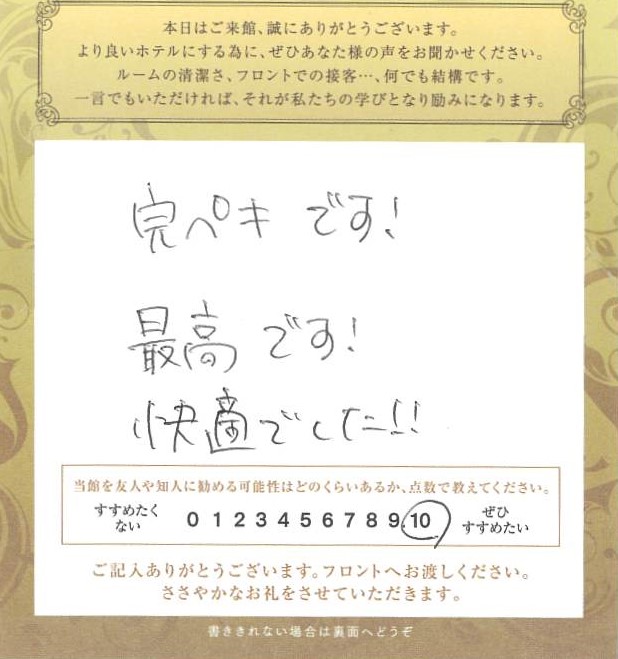 本日はご来館、誠にありがとうございます。
より良いホテルにする為に、ぜひあなた様の声をお聞かせください。
ルームの清潔さ、フロントでの接客…、何でも結構です。
一言でもいただければ、それが私たちの学びとなり励みになります。
完ペキです!
最高です!
快適でした!!
当館を友人や知人に勧める可能性はどのくらいあるか、点数で教えてください。
すすめたく
ない
0 1 2 3 4 5 6 7 8 9 10
ぜひ
すすめたい
ご記入ありがとうございます。フロントへお渡しください。
ささやかなお礼をさせていただきます。
書ききれない場合は裏面へどうぞ